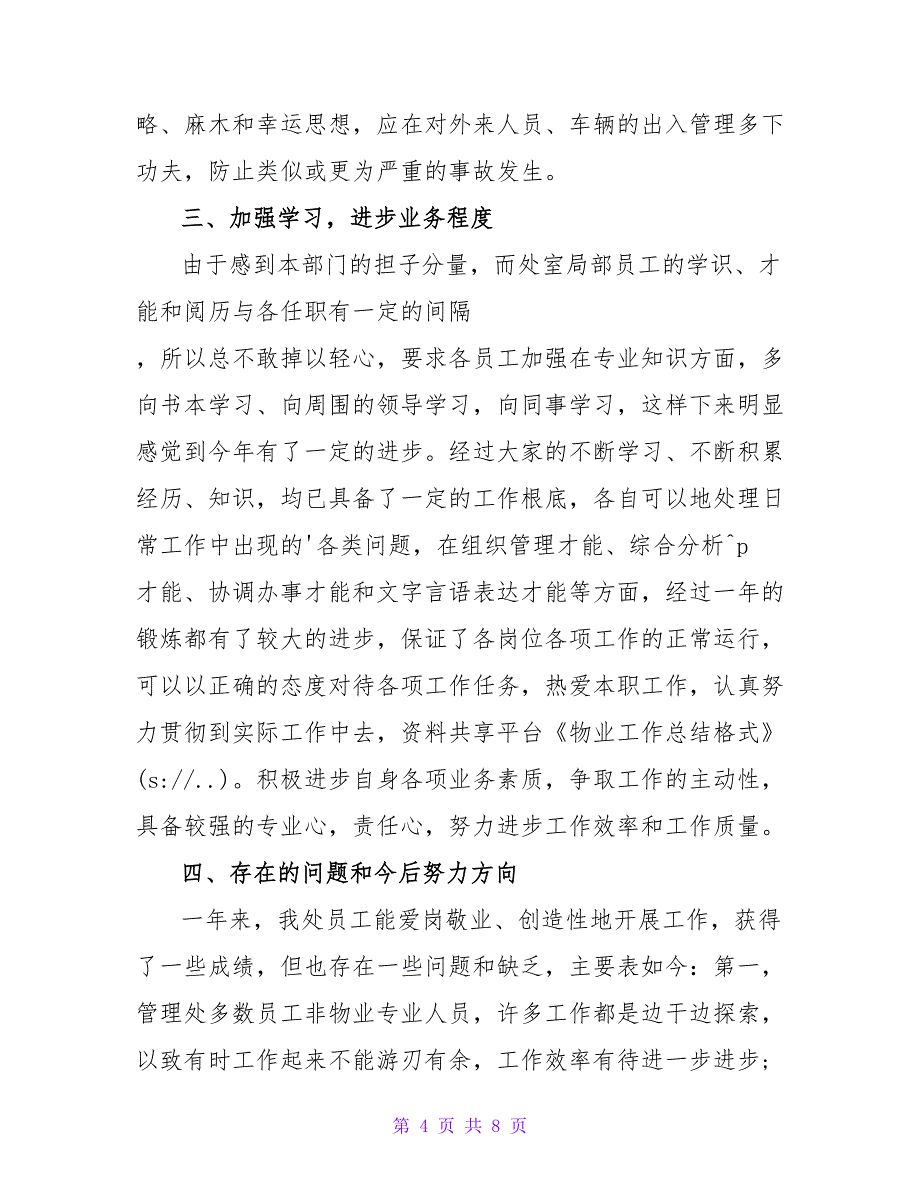 略、麻木和幸运思想，应在对外来人员、车辆的出入管理多下
功夫，防止类似或更为严重的事故发生。
三、加强学习，进步业务程度
由于感到本部门的担子分量，而处室局部员工的学识、才
能和阅历与各任职有一定的间隔
，所以总不敢掉以轻心，要求各员工加强在专业知识方面，多
向书本学习、向周围的领导学习，向同事学习，这样下来明显
感觉到今年有了一定的进步。经过大家的不断学习、不断积累
经历、知识，均已具备了一定的工作根底，各自可以地处理日
常工作中出现的'各类问题，在组织管理才能、综合分析^p
才能、协调办事才能和文字言语表达才能等方面，经过一年的
锻炼都有了较大的进步，保证了各岗位各项工作的正常运行，
可以以正确的态度对待各项工作任务，热爱本职工作，认真努
力贯彻到实际工作中去，资料共享平台《物业工作总结格式》
(s://..)。积极进步自身各项业务素质，争取工作的主动性，
具备较强的专业心，责任心，努力进步工作效率和工作质量。
四、存在的问题和今后努力方向
一年来，我处员工能爱岗敬业、创造性地开展工作，获得
了一些成绩，但也存在一些问题和缺乏，主要表如今：第一，
管理处多数员工非物业专业人员，许多工作都是边干边探索，
以致有时工作起来不能游刃有余，工作效率有待进一步进步;
第 4 页 共 8 页